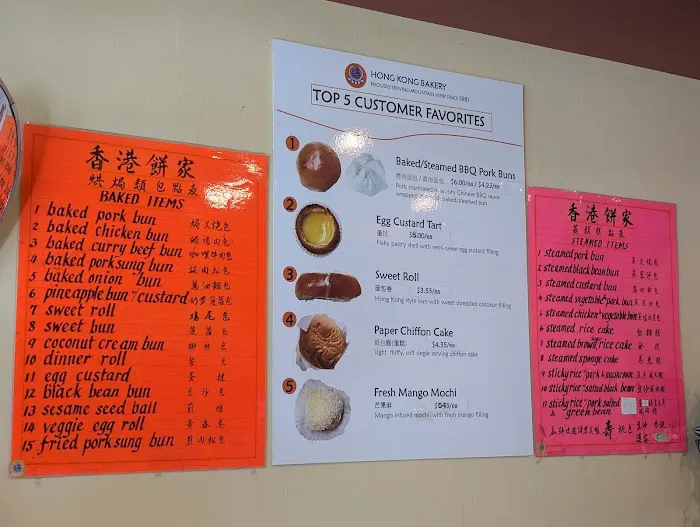 香港餅家
烘焗類包點表
BAKED ITEMS
1 baked pork bun 焗叉燒包
2 baked chicken bun
3 baked curry beef bun 咖喱牛肉包
4 baked porksung bun
5 baked onion bun
6 pineapple bun w/custard
7 sweet roll 雞尾包
8 sweet bun 菠蘿包
9 coconut cream bun 椰絲包
10 dinner roll 餐包
11 egg custard 蛋撻
12 black bean bun 豆沙包
13 sesame seed ball 煎堆
14 veggie egg roll 素春卷
15 fried porksung bun
HONG KONG BAKERY
PROUDLY SERVING MOUNTAIN VIEW SINCE 1981
TOP 5 CUSTOMER FAVORITES
1
Baked/Steamed BBQ Pork Buns
$6.00/ea / $4.25/ea
Pork marinated in savory Chinese BBQ sauce
wrapped in a fresh baked/steamed bun
2
Egg Custard Tart
蛋撻 $5.00/ea
Flaky pastry shell with semi-sweet egg custard filling
3
Sweet Roll
$3.55/ea
Hong Kong style bun with sweet shredded coconut filling
4
Paper Chiffon Cake
紙包糕(蛋糕) $4.35/ea
Light, fluffy, soft single serving chiffon cake
5
Fresh Mango Mochi
芒果麻
Mango infused mochi with fresh mango filling
香港餅家
蒸類包點表
STEAMED ITEMS
1 steamed pork bun
2 steamed black bean bun
3 steamed custard bun
4 steamed vegetable & pork bun
5 steamed chicken vegetable bun
6 steamed rice cake
7 steamed brown rice cake
8 steamed sponge cake
9 sticky rice w/ pork & mushroom
10 sticky rice w/ salted black bean
11 sticky rice w/ pork salted
& green bean
壽桃包